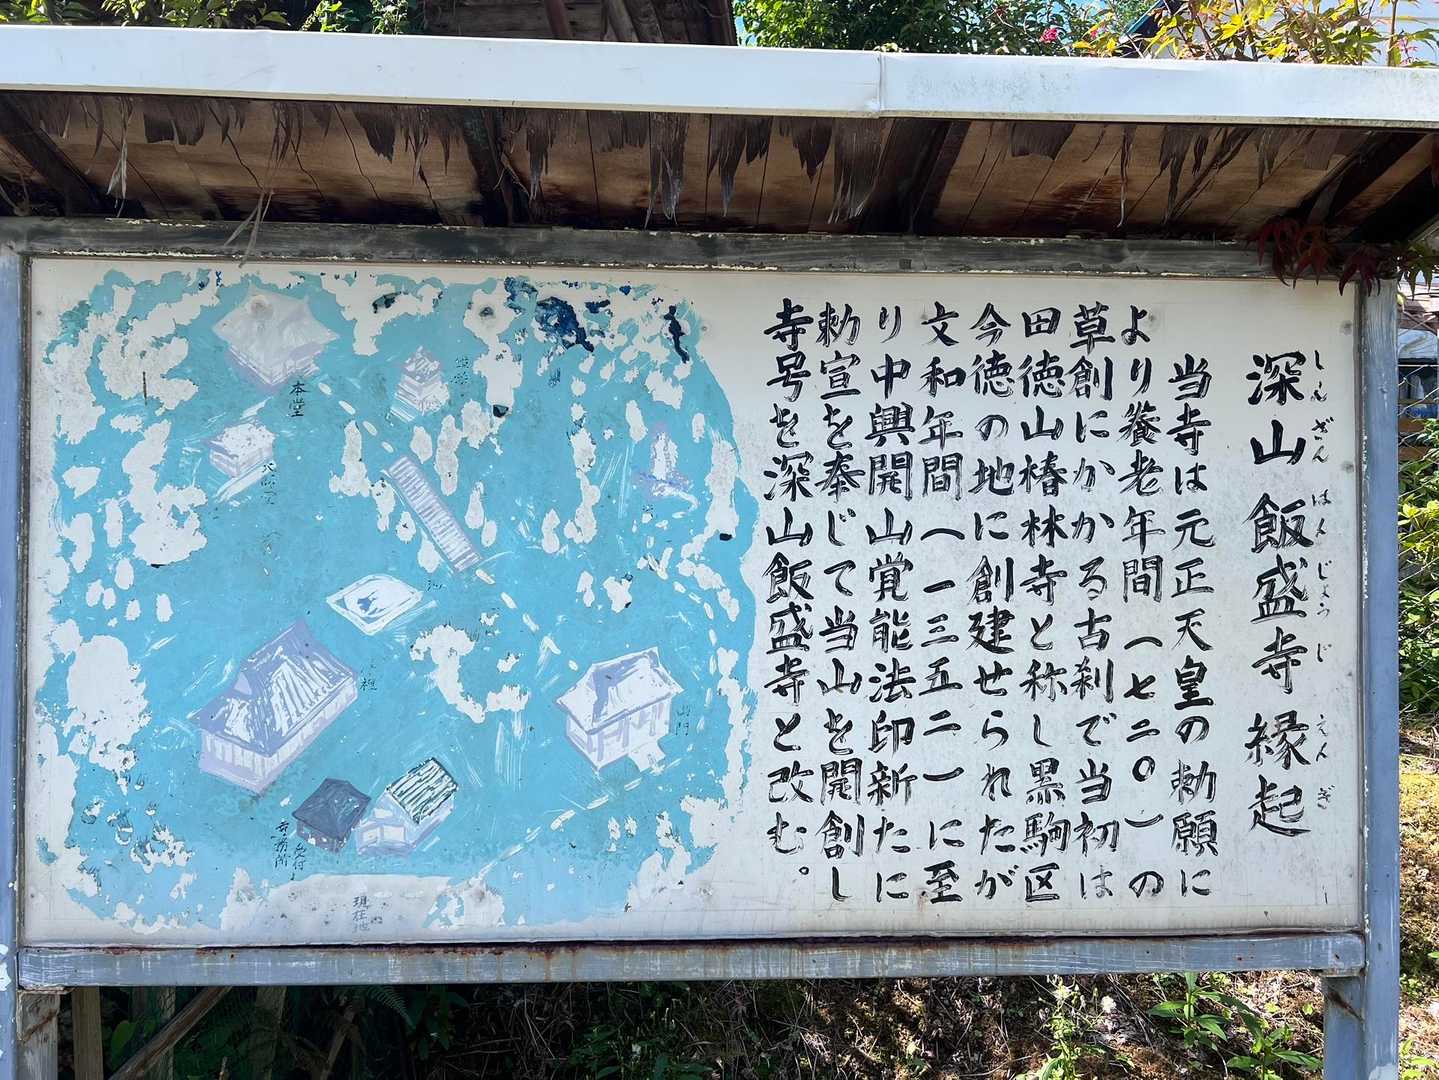 深山飯盛寺縁起
しんざんはんじょうじえんぎ
当寺は元正天皇の勅願に
より養老年間(七二〇)の
草創にかかる古刹で当初は
田徳山椿林寺と称し黒駒区
今徳の地に創建せられたが
文和年間(一三五二)に至
り中興開山覚能法印新たに
勅宣を奉じて当山を開創し
寺号を深山飯盛寺と改む。
本堂
池
山門
寺務所
受付
現在地